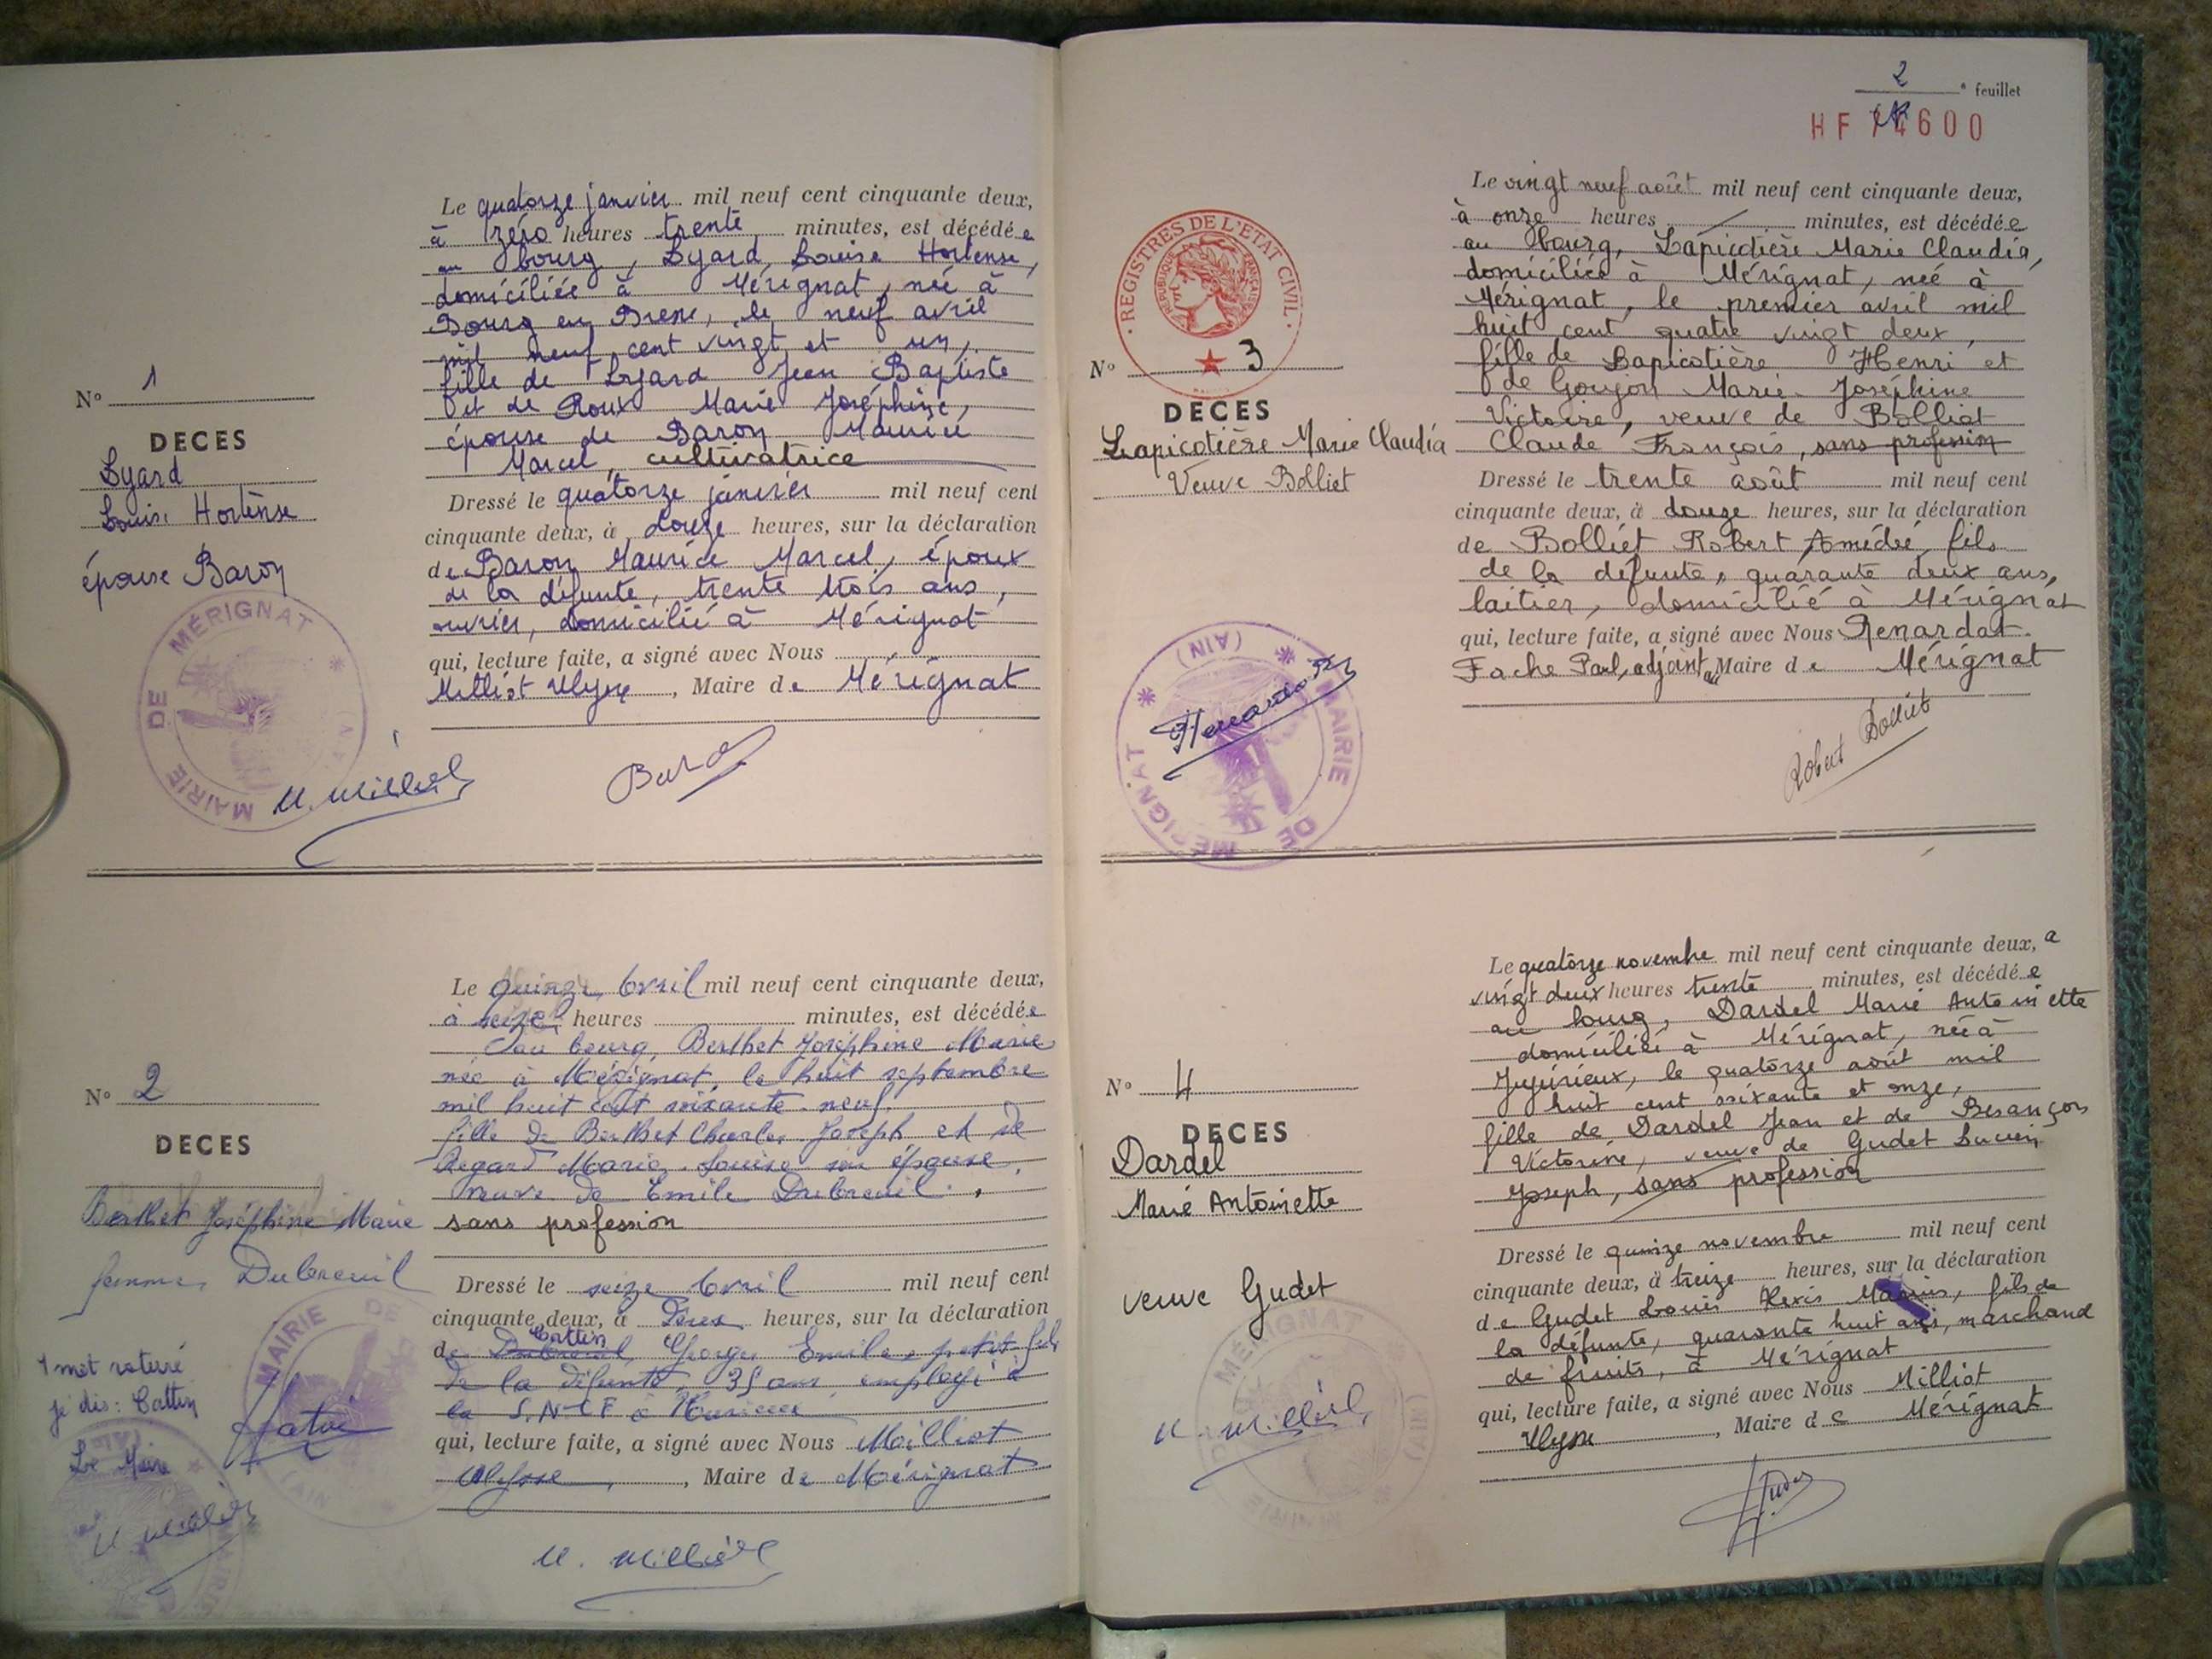 N° 1
DECES
Lyard
Louise Hortense
épouse Baron
MAIRIE DE MÉRIGNAT
Le quatorze janvier mil neuf cent cinquante deux,
à zéro heures trente minutes, est décédée
au bourg, Lyard Louise Hortense,
domiciliée à Mérignat, née à
Bourg en Bresse, le neuf avril
mil neuf cent vingt et un,
fille de Lyard Jean Baptiste
et de Roux Marie Joséphine,
épouse de Baron Maurice
Marcel, cultivatrice
Dressé le quatorze janvier mil neuf cent
cinquante deux, à douze heures, sur la déclaration
de Baron Maurice Marcel, époux
de la défunte, trente trois ans,
ouvrier, domicilié à Mérignat
qui, lecture faite, a signé avec Nous
Milliat Ulysse, Maire de Mérignat
U. Milliat
Baron
N° 2
DECES
Berthet Joséphine Marie
femme Dubreuil
1 mot raturé
je dis : Cattin
Le Maire
U Milliat
MAIRIE DE
(AIN)
Le quinze Avril mil neuf cent cinquante deux,
à seize heures minutes, est décédée
au bourg, Berthet Joséphine Marie
née à Mérignat, le huit septembre
mil huit cent soixante-neuf.
fille de Berthet Charles Joseph et de
Regard Marie-Louise son épouse,
veuve de Emile Dubreuil.,
sans profession
Dressé le seize Avril mil neuf cent
cinquante deux, à heures, sur la déclaration
Cattin
de Dubreuil Georges Emile, petit fils
de la défunte, 35 ans, employé à
la S.N.C.F à
qui, lecture faite, a signé avec Nous Milliat
Ulysse, Maire de Mérignat
U. Milliat
2e feuillet
HF 74600
REGISTRES DE L'ETAT CIVIL
RÉPUBLIQUE FRANÇAISE
N° 3
DECES
Lapicotière Marie Claudia
Veuve Bolliet
MAIRIE DE MÉRIGNAT (AIN)
Le vingt neuf août mil neuf cent cinquante deux,
à onze heures minutes, est décédée
au bourg, Lapicotière Marie Claudia,
domiciliée à Mérignat, née à
Mérignat, le premier avril mil
huit cent quatre vingt deux,
fille de Lapicotière Henri et
de Goujon Marie-Joséphine
Victoire, veuve de Bolliet
Claude François, sans profession
Dressé le trente août mil neuf cent
cinquante deux, à douze heures, sur la déclaration
de Bolliet Robert Amédée, fils
de la défunte, quarante deux ans,
laitier, domicilié à Mérignat
qui, lecture faite, a signé avec Nous Renardat
Fache Paul, adjoint au Maire de Mérignat
Robert Bolliet
N° 4
DECES
Dardel
Marie Antoinette
veuve Gudet
U. Milliat
MAIRIE DE MÉRIGNAT (AIN)
Le quatorze novembre mil neuf cent cinquante deux, a
vingt deux heures trente minutes, est décédée
au bourg, Dardel Marie Antoinette
domiciliée à Mérignat, née à
Jujurieux, le quatorze août mil
huit cent soixante et onze,
fille de Dardel Jean et de Besançon
Victorine, veuve de Gudet Lucien
Joseph, sans profession
Dressé le quinze novembre mil neuf cent
cinquante deux, à treize heures, sur la déclaration
de Gudet Louis Alexis Marius, fils de
la défunte, quarante huit ans, marchand
de fruits, à Mérignat
qui, lecture faite, a signé avec Nous Milliat
Ulysse, Maire de Mérignat
Gudet